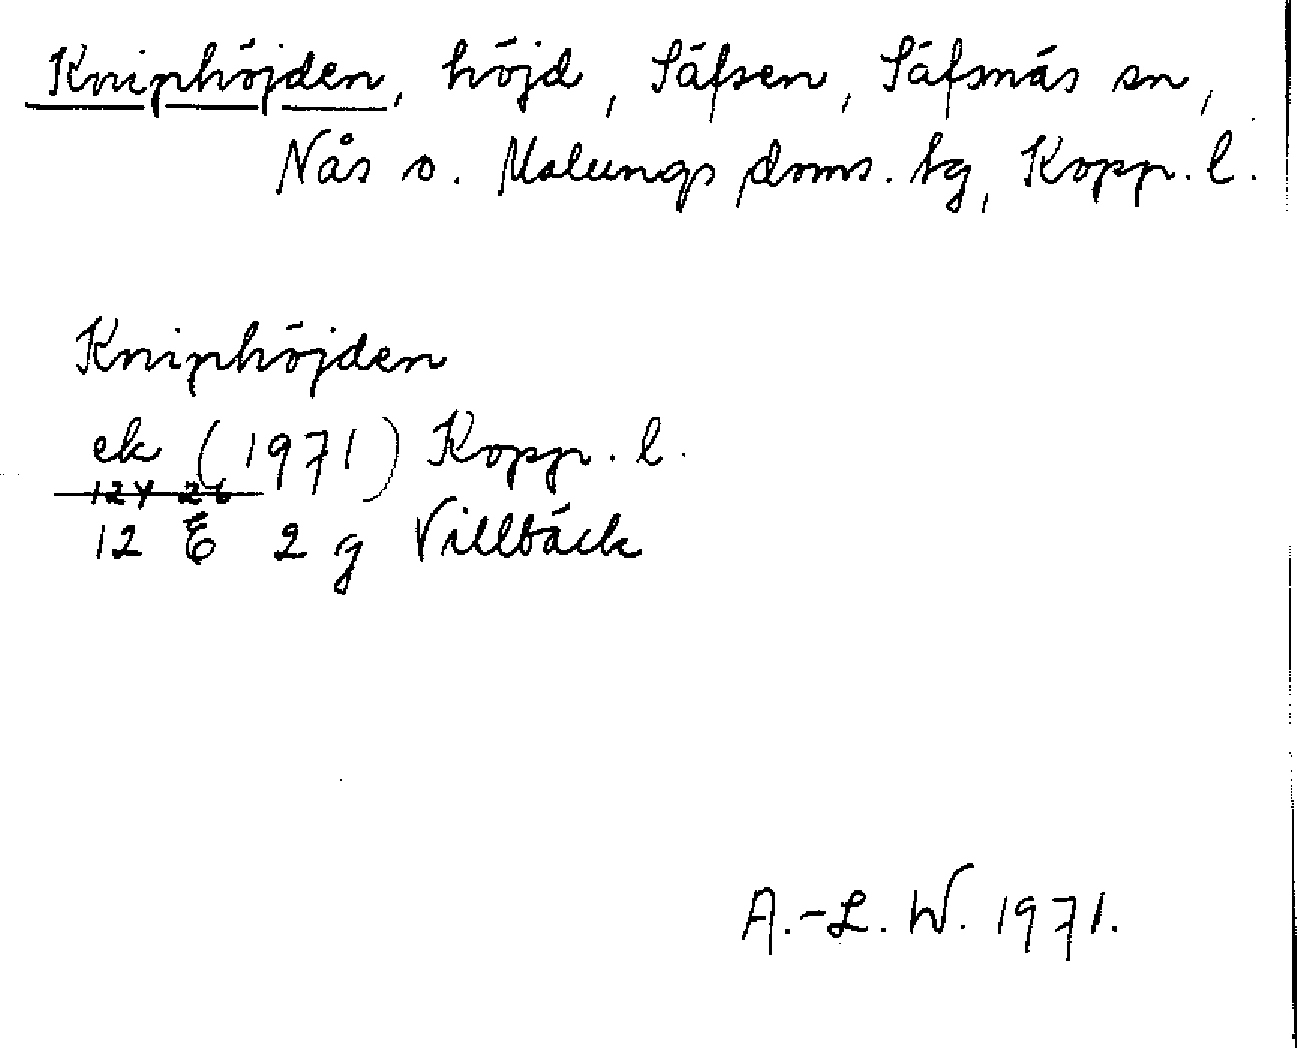 Kniphöjden, höjd, Säfsen, Säfsnäs sn,
Nås o. Malungs doms. tg, Kopp. l.
Kniphöjden
ek (1971) Kopp. l.
12 E 2 g Villbäck
A.-L. W. 1971.